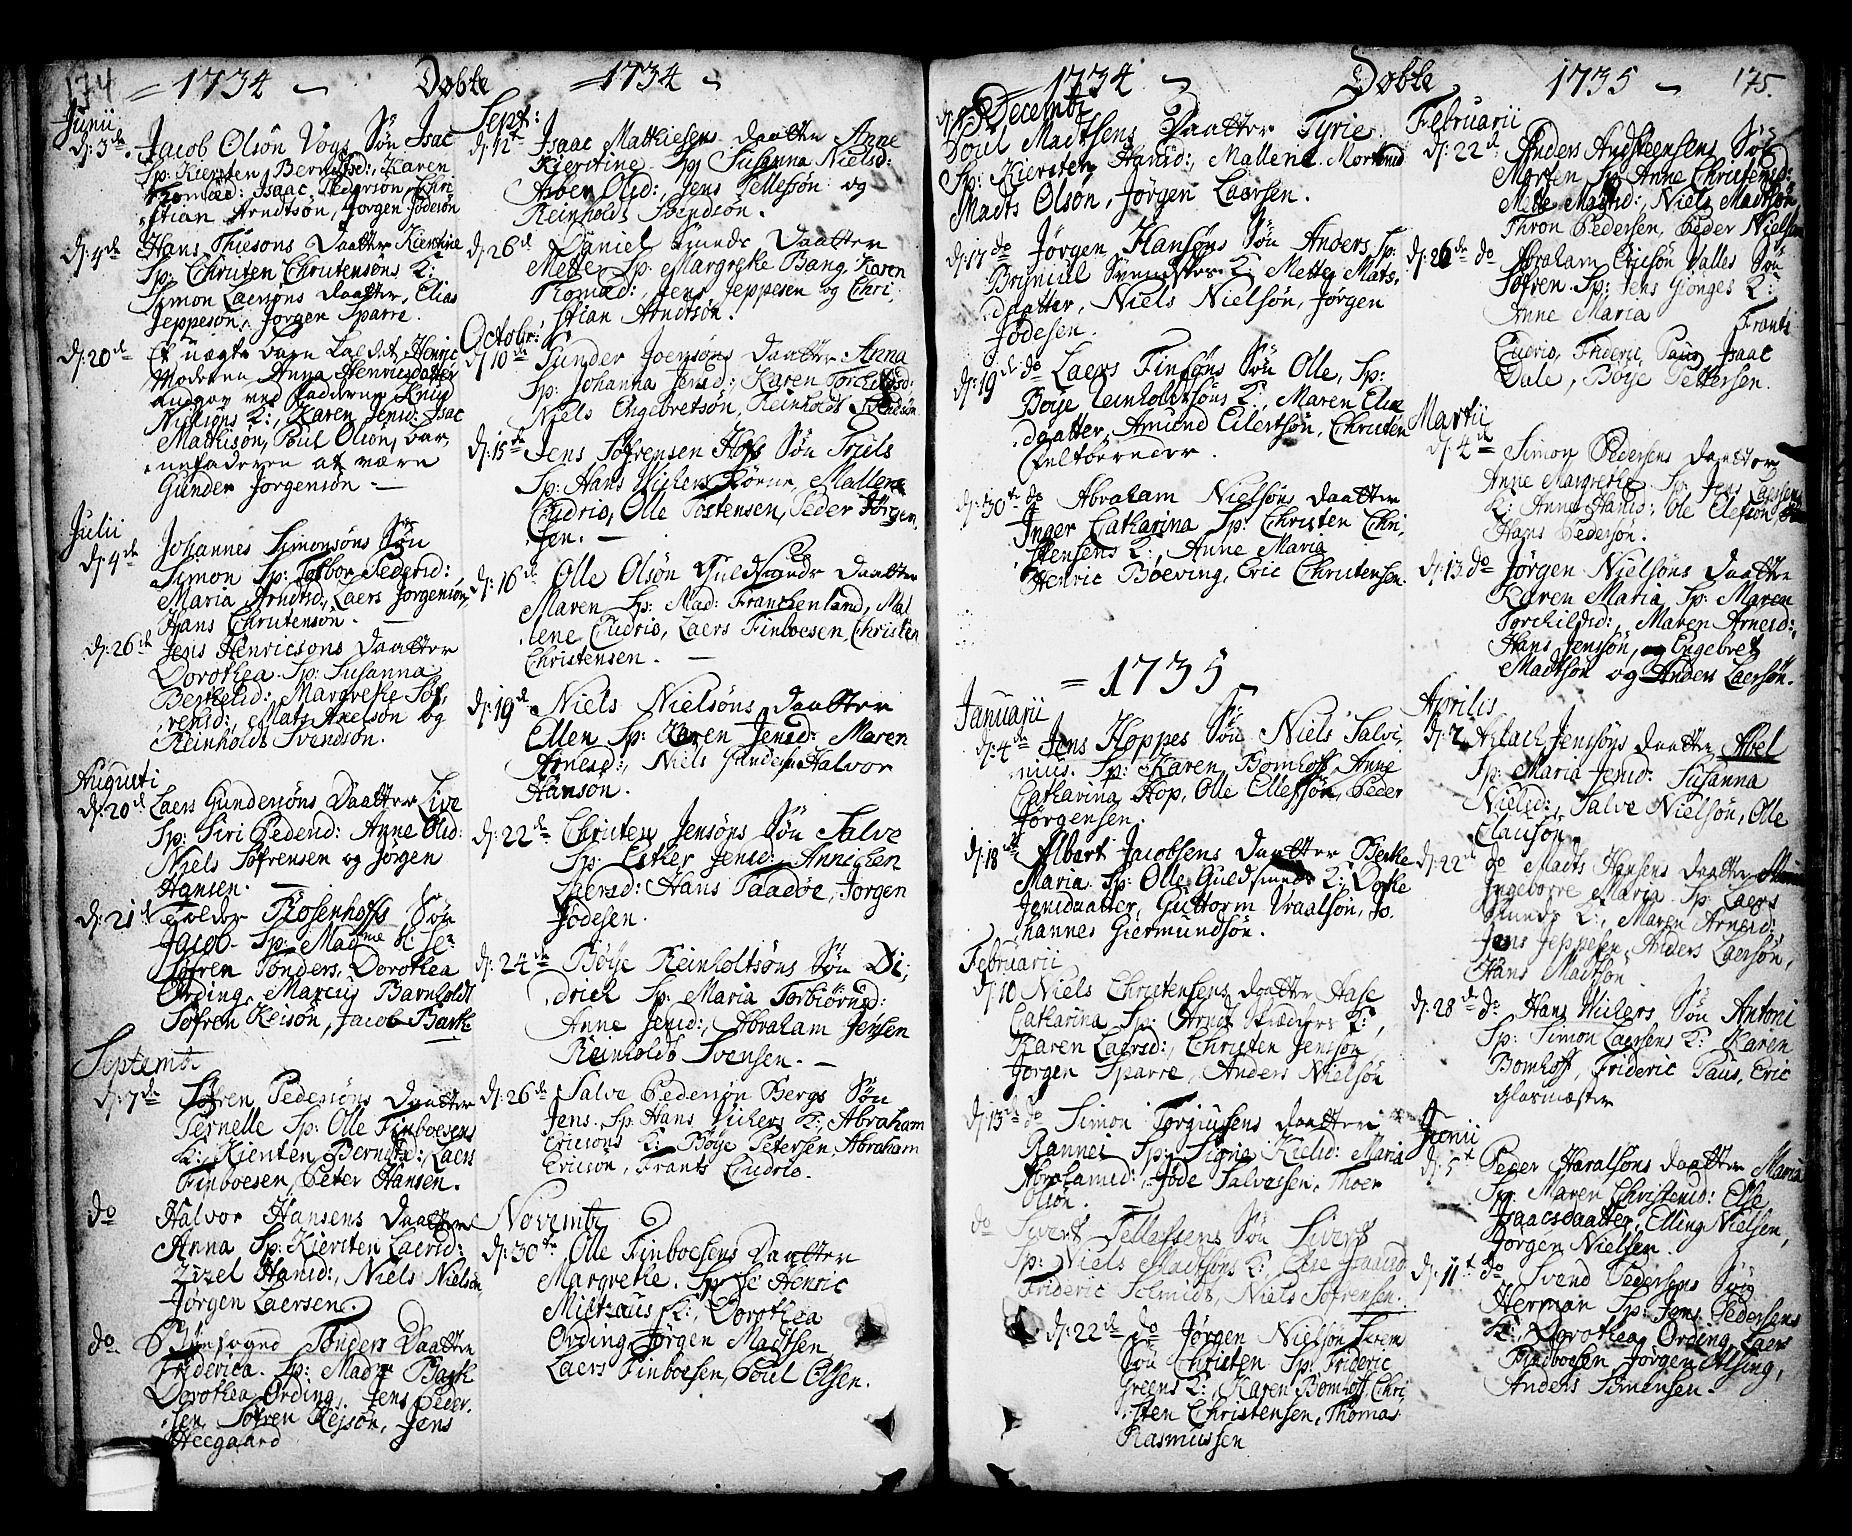 174 = 1734 - Døbte
Junii
d: 3de Jacob Olsøn Vogs Søn Isac
Sp: Kiersten Berntsd:, Karen
Thomæd: Isaac Pedersøn, Chri-
stian Arndtsøn, Jørgen Jodesøn
d: 4de Hans Thiesøns Daatter Kierstine
Sp: Christen Christensøns K:
Simon Laersøns Daatter, Elias
Jeppesøn, Jørgen Sparre.
d: 20de Et uægte barn kaldet Henric
Moderen Anna Henricsdatter
udgav ved Faderen Knud
Nielsøns K:, Karen Jensd: Isac
Mathisøn, Poul Olsøn, bar-
nefaderen at være
Gunder Jørgensøn -
Julii
d: 4de Johannes Simonsøns Søn
Simon Sp: Tabor Pedersd:
Maria Arndtsd:, Laers Jørgensøn,
Hans Christensøn. -
d: 26de Jens Henricsøns Daatter
Dorothea Sp: Susanna
Berthelsd: Margrethe Søf-
rensd:, Mats Axelsøn og
Reinholdt Svendsøn.
Augusti
d: 20de Laers Gundersøns Daatter Live
Sp: Siri Pedersd: Anne Olsd:
Niels Søfrensen og Jørgen
Hansen. -
d: 21de Rosenhoffs Søn
Jacob Sp: Madme
Søfren Tønders, Dorothea
Ording, Marcus Barnholdt
Søfren Rejsøn, Jacob Bark
Septemb:
d: 7de Søfren Pedersøns Daatter
Pernelle Sp: Olle Finboesens
K:, Kiersten Berntsd:, Laers
Finboesen, Peter Hansen.
do Halvor Hansens Daatter
Anna Sp: Kiersten Laersd:
Zizel Hansd:, Niels Nielsøn
Jørgen Laersen.
do Tønders Daatter
Friderica. Sp: Madme Bark
Dorothea Ording, Jens Peder-
sen Søfren Rejsøn, Jens
Heegaard
= 1734 -
Sept:
d: 12t Isaac Mathiesens daatter Anne
Kierstine Sp: Susanna Nielsd:
Olsd:, Jens Tellefsøn og
Reinholdt Svendsøn.
d: 26d Daniel Smeds Daatter
Mette Sp: Margrethe Bang, Karen
Thomæd:, Jens Jeppesen og Chri-
stian Arndtsøn.
Octobr:
d: 10de Gunder Joensøns Daatter Anna
Sp: Johanna Jensd: Karen Torchildsd:
Niels Engebretsøn, Reinholdt Svendsøn.
d: 15de Jens Søfrensen Hofs Søn Troels
Sp: Hans Wichers Kone, Mallene
Cudrio, Olle Tostensen, Peder Jørgen-
sen. -
d: 16d Olle Olsøn Guldsmeds Daatter
Maren Sp: Mad: Franckenland, Mal
lene Cudrio, Laers Finboesen, Christen
Christensen. -
d: 19de Niels Nielsøns Daatter
Ellen Sp: Karen Jensd: Maren
Arnesd:, Niels Gundersen Halvor
Hansøn.
d: 22de Christen Jensøns Søn Salve
Sp: Esther Jensd:, Annichen
Laersd: Hans Taadøe, Jørgen
Jodesen.
d: 24de Böye Reinholtsøns Søn Di-
drich Sp: Maria Torbiörnsd:
Anne Jensd:, Abraham Jensen
Reinholdt Svensen. -
d: 26de Salve Pedersøn Bergs Søn
Jens. Sp: Hans Vichers K:, Abraham
Ericsøns K: Böye Petersen, Abraham
Ericsøn, Frants Cudrio.
Novembr
d: 30te Olle Finboesens Daatter
Margrethe. Sp: Sr Henric
Miltzaus K:, Dorothea
Ording, Jørgen Madtsen
Laers Finboesen, Poul Olsen.
= 1734 - Døbte
Decembr
Poul Madtsens Daatter Tyrie
Sp: Kiersten Hansd:, Mallene Mortensd
Madts Olsøn, Jørgen Laersen.
d: 17 do Jørgen Hansøns Søn Anders Sp:
K: Mette Mats-
daatter, Niels Nielsøn, Jørgen
Jodesen.
d: 19de do Laers Finsøns Søn Olle, Sp:
Böye Reinholdtsøns K:, Maren Elie
daatter, Amund Eilertsøn, Christen
d: 30te do Abraham Nielsøns Daatter
Inger Catharina Sp: Christen Chri-
stensens K:, Anne Maria
Henric Böeving, Eric Christensen.
= 1735 -
Januarii
d: 4de Jens Hoppes Søn Niels Salvi-
nius. Sp: Karen Bomhoff, Anne
Catharina Hop, Olle Ellefsøn, Peder
Jørgensen.
d: 18de Albert Jacobsens Daatter Berthe
Maria Sp: Olle Guldsmeds K: Dorthe
Jensdaatter, Guttorm Vraalsøn, Jo-
hannes Giermundsøn.
Februarii
d: 10 Niels Christensens Daatter Hase
Catharina Sp: Arndt K:,
Karen Laersd:, Christen Jensøn,
Jørgen Sparre, Anders Nielsøn
d: 13de do Simon Torgiussens daatter
Rannei Sp: Signa Kielsd: Maria
Abrahamsd:, Jöde Salvessen, Thoer
Olsøn.
do Sivert Tellefsens Søn Sivert
Sp: Niels Madtsøns K:
Frideric Schmidt, Niels Søfrensen.
d: 22de do Jørgen Nielsøn
Søn Christen Sp: Frideric
Greens K:, Karen Bomhoff, Chri-
sten Christensen, Thomas
Rasmussen
1735 - 175.
Februarii
d: 22de Anders Andsteensens Søn
Morten Sp: Anne Christensd:
Mette Madtsd:, Niels Madtsøn
Thron Pedersen, Peder Nielsøn
d: 26de do Abraham Ericsøn Valles Søn
Søfren. Sp: Jens Giönges K:
Anne Maria Frants
Cudrio, Frideric Paus, Isaac
Dale, Böye Pettersen.
Martii
d: 4de Simon Pedersens Daatter
Anne Margrethe Sp: Jens Laersens
K: Anne Hansd: Ole Elefsøn
Hans Pedersøn.
d: 13 do Jørgen Nielsøns Daatter
Karen Maria Sp: Maren
Torchildsd:, Maren Arnesd:,
Hans Jensøn, og Engebret
Madtsøn og Anders Laersøn.
Aprilis
d: 2 Aslach Jensøns daatter Abel
Sp: Maria Jensd: Susanna
Nielsd:, Salve Nielsøn, Olle
Clausøn
d: 22de do Madts Hansens daatter
Ingeborre Maria Sp: Laers
Smeds K:, Maren Arnesd:
Jens Jeppesen, Anders Laersøn,
Hans Madtsøn
d: 28de do Hans Wichers Søn Antoni
Sp: Simon Laersens K: Karen
Bomhoff, Frideric Paus, Eric
Glarmæster
Junii
d: 5t Peder Haralsøns daatter Maria
Sp: Maren Christensd: Else
Isaacsdaatter, Elling Nielsen,
Jørgen Nielsen.
d: 11t do Svend Pedersens Søn
Herman Sp: Jens Pedersens
K:, Dorothea Ording, Laers
Jørgen Alsing,
Anders Simensen.